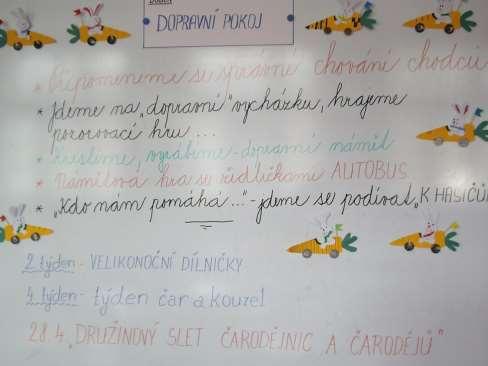 DUBEN
DOPRAVNÍ POKOJ
* Připomeneme si správné chování chodců
* Jdeme na „dopravní" vycházku, hrajeme
pozorovací hru...
* Kreslíme, vyrábíme - dopravní námět
* Námětová hra se židličkami AUTOBUS
* „Kdo nám pomáhá..." - jdeme se podívat „K HASIČŮM
2. týden - VELIKONOČNÍ DÍLNIČKY
4. týden - týden čar a kouzel
28.4. „DRUŽINOVÝ SLET ČARODĚJNIC A ČARODĚJŮ"